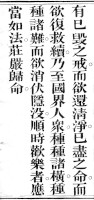 有已毀之戒而欲還清淨已盡之命而
欲復救續乃至國界人衆種種諸橫種
種諸難而欲消伏隱沒順時歡樂者應
當如法莊嚴歸命